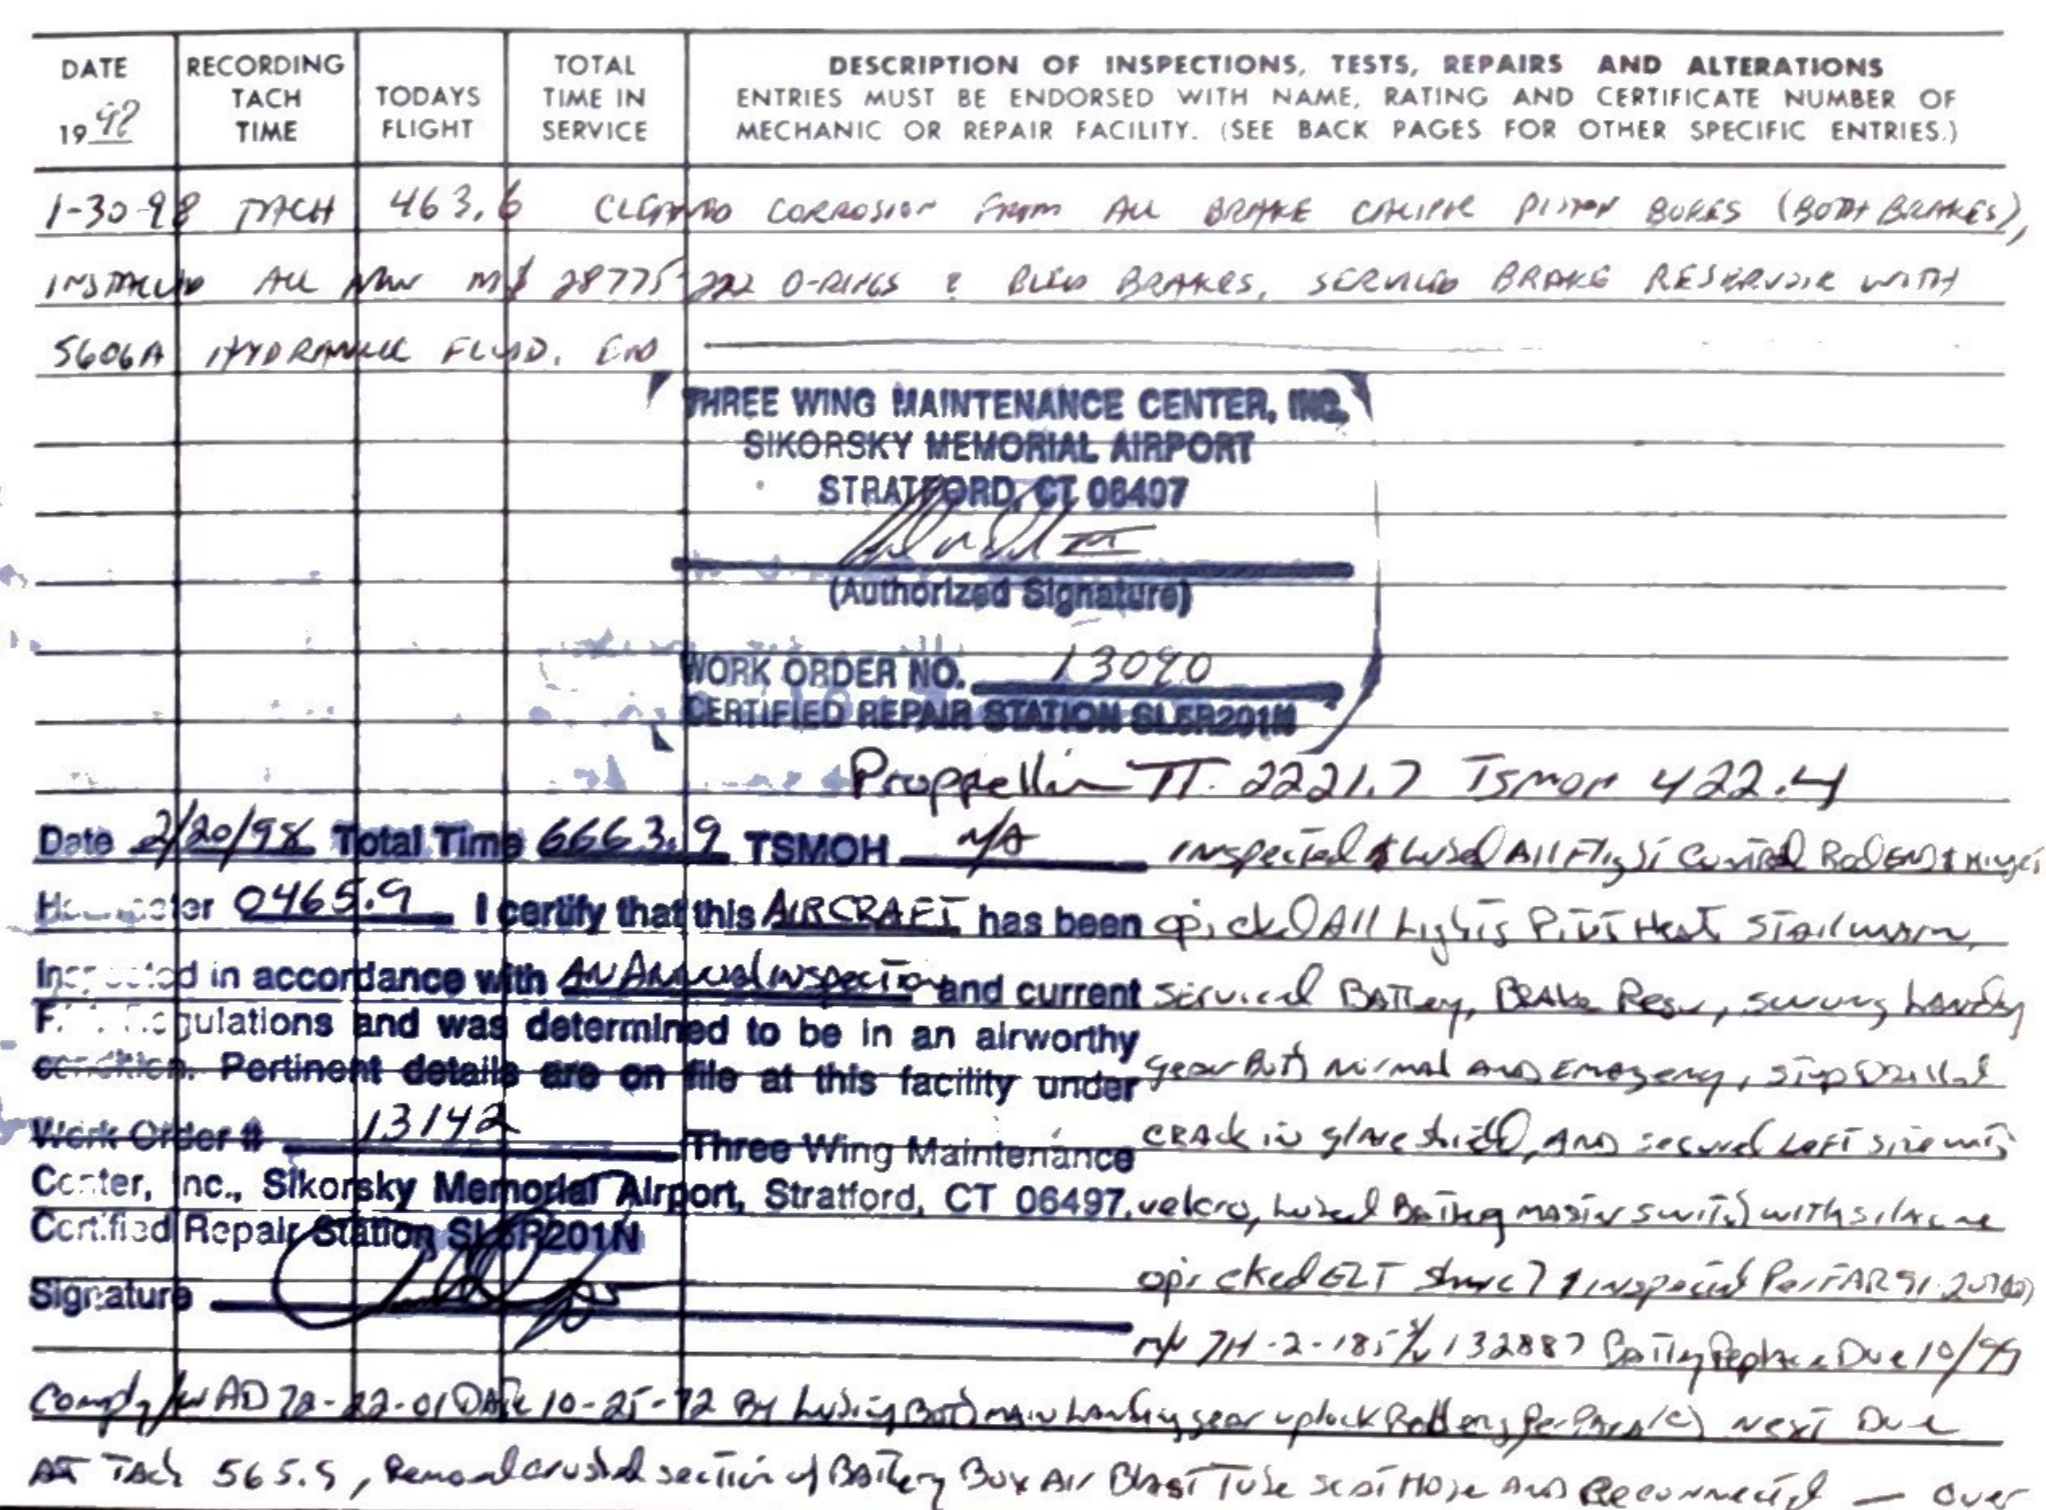 DATE 1998
RECORDING TACH TIME
TODAYS FLIGHT
TOTAL TIME IN SERVICE
DESCRIPTION OF INSPECTIONS, TESTS, REPAIRS AND ALTERATIONS
ENTRIES MUST BE ENDORSED WITH NAME, RATING AND CERTIFICATE NUMBER OF
MECHANIC OR REPAIR FACILITY. (SEE BACK PAGES FOR OTHER SPECIFIC ENTRIES.)
1-30-98 TACH 463.6 CLEANED CORROSION FROM ALL BRAKE CALIPER PISTON BORES (BOTH BRAKES),
INSTALLED ALL NEW MS 28775-222 O-RINGS & BLED BRAKES, SERVICED BRAKE RESERVOIR WITH
5606A HYDRAULIC FLUID. END
THREE WING MAINTENANCE CENTER, INC.
SIKORSKY MEMORIAL AIRPORT
STRATFORD, CT 06497
(Authorized Signature)
WORK ORDER NO. 13090
CERTIFIED REPAIR STATION SL5R201N
Proppeller TT. 2221.7 TSMOH 422.4
Date 2/20/98 Total Time 6663.9 TSMOH N/A
Hourmeter 0465.9 I certify that this AIRCRAFT has been
Inspected in accordance with AN Annual inspection and current
F.A. Regulations and was determined to be in an airworthy
condition. Pertinent details are on file at this facility under
Work Order # 13142 Three Wing Maintenance
Center, Inc., Sikorsky Memorial Airport, Stratford, CT 06497.
Certified Repair Station SL5R201N
Signature
inspected & lubed All Flight Control Rod Ends & Hinges
op. cked All Lights Pitot Heat, Stall warn,
serviced Battery, Brake Resv, swung Landing
gear Both Normal and Emergency, stop Drilled
CRACK in glare shield, AND secured Left side with
velcro, Lubed Battery master switch with silicone
op. cked ELT & inspected Per FAR 91.207(d)
132887 Battery Replace Due 10/99
Comply/w AD 72-22-01 DATE 10-25-72 By Lubing Both main Landing gear uplock Rollers per Para(c) Next Due
AT Tach 565.5, Removed crushed section of Battery Box Air Blast Tube scat Hose AND Reconnected — over